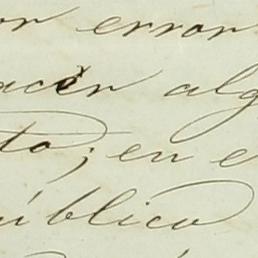 or error
acer alg
to; en e
úblico